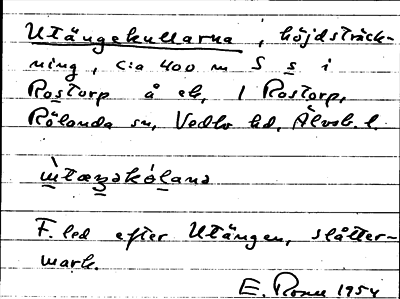 Utängekullarna, höjdsträck-
ning, cia 400 m S s i
Rostorp å ek, 1 Rostorp,
Rölanda sn, Vedbo hd, Älvsb. l.
ùtæŋəkólana
F. led efter Utängen, slåtter-
mark.
E. 1954